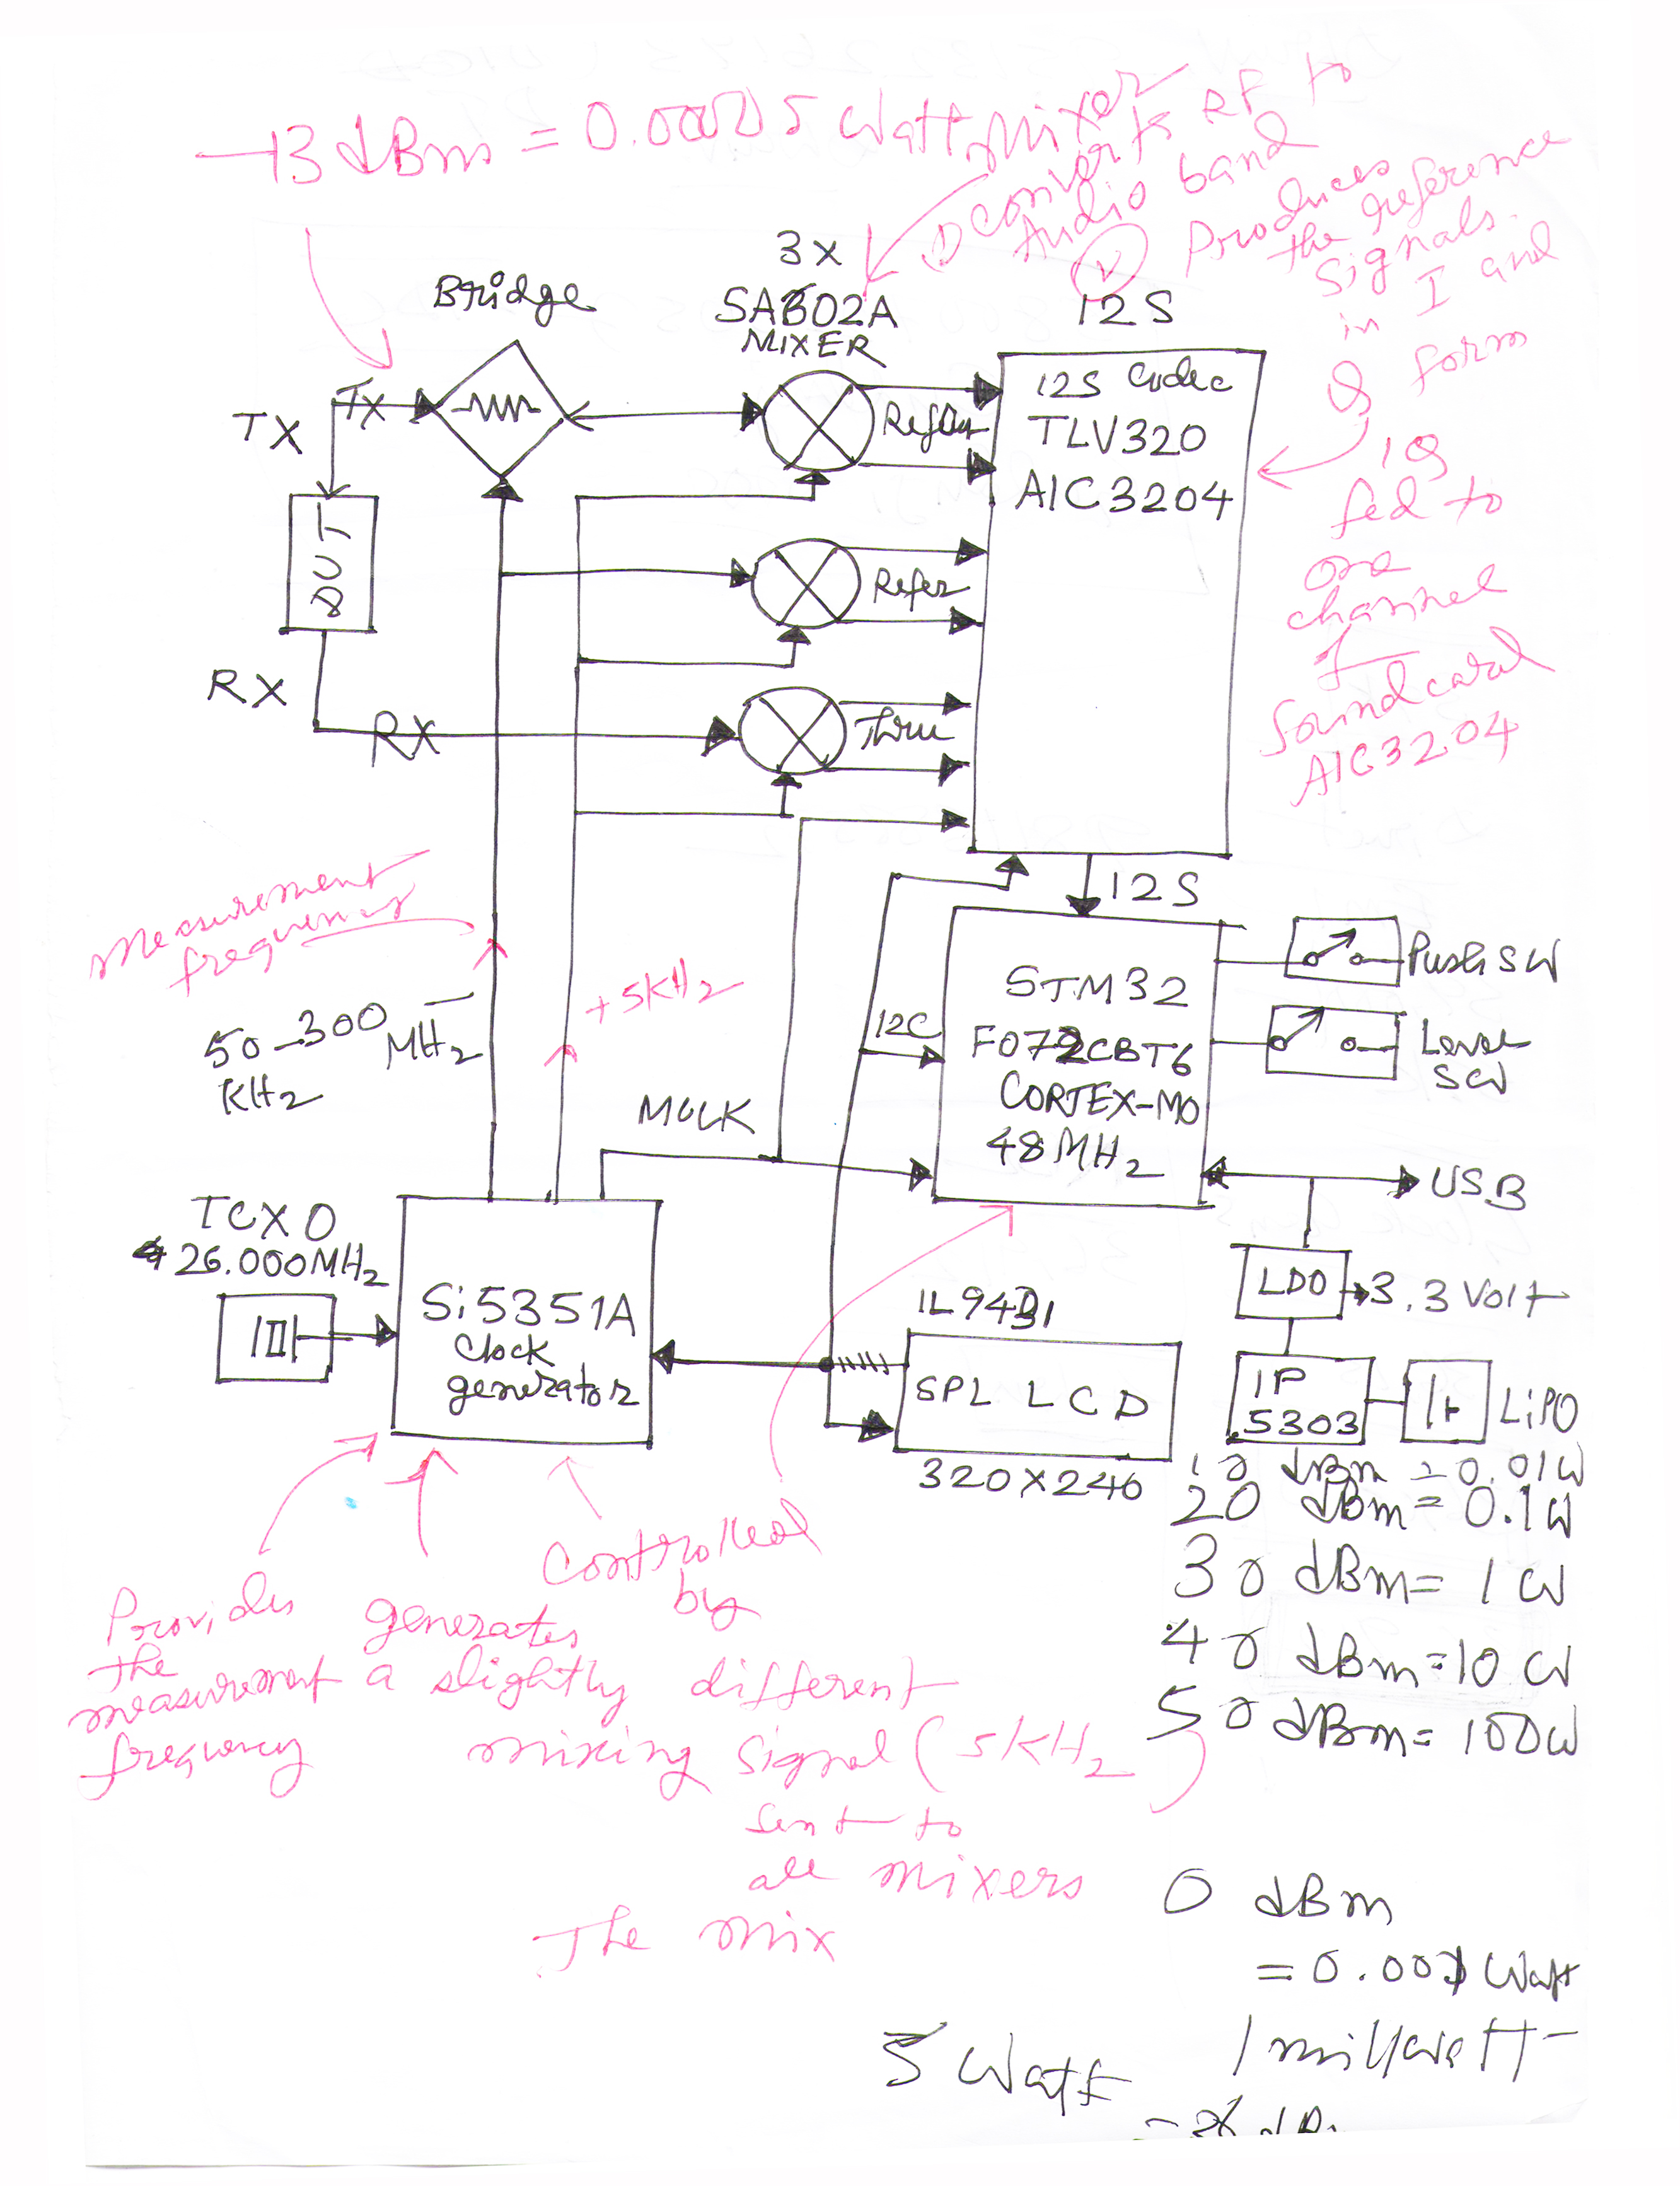 -13 dBm = 0.00005 Watt
Mixer
① converts RF to
Audio band
Produces
the reference
signals
in I and
Q form
IQ
fed to
one
channel
of
Soundcard
AIC3204
3x
SA602A
MIXER
Bridge
I2S
I2S Codec
TLV320
AIC3204
TX
TX
DUT
RX
RX
Refer
Thru
I2S
Measurement
frequency
50-300
KHz MHz
+5KHz
MCLK
I2C
STM32
F072CBT6
CORTEX-M0
48 MHz
Push SW
Level
SW
USB
LDO
3.3 Volt
IP
5303
LiPO
TCXO
26.000MHz
Si5351A
Clock
generator
SPL LCD
320X240
Controlled
by
Provides
the
measurement
frequency
generates
a slightly different
mixing signal (5KHz)
sent to
all mixers
The mix
10 dBm = 0.01W
20 dBm = 0.1W
30 dBm = 1W
40 dBm = 10W
50 dBm = 100W
0 dBm
= 0.001 Watt
1 milliwatt
5 Watt